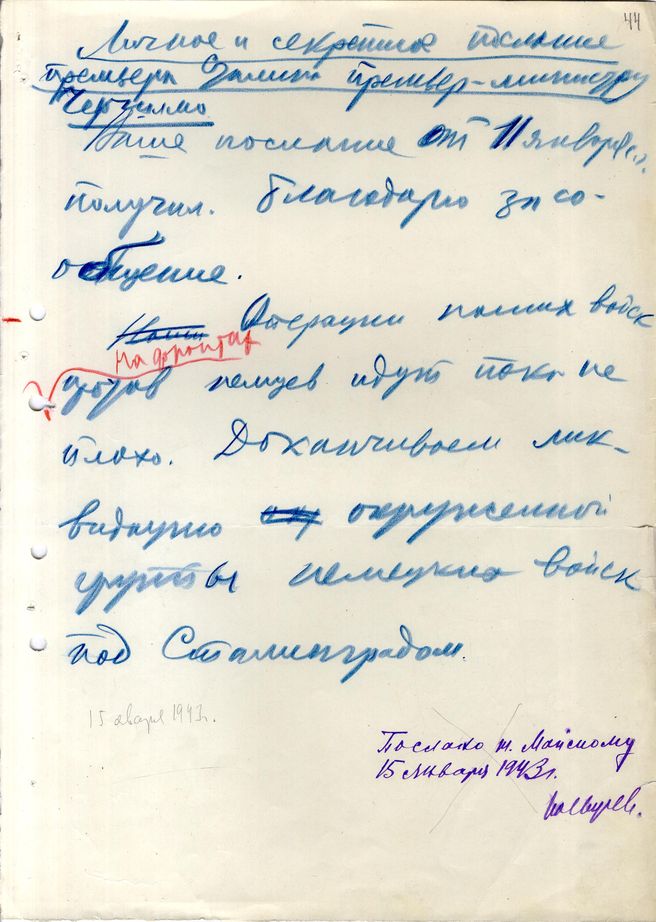 44
Личное и секретное послание
премьера Сталина премьер-министру
Черчиллю
Ваше послание от 11 января
получил. Благодарю за со-
общение.
Наши Операции наших войск
на фронтах
против немцев идут пока не
плохо. Доканчиваем лик-
видацию окруженной
группы немецких войск
под Сталинградом.
15 января 1943 г.
Послано т. Майскому
15 января 1943 г.